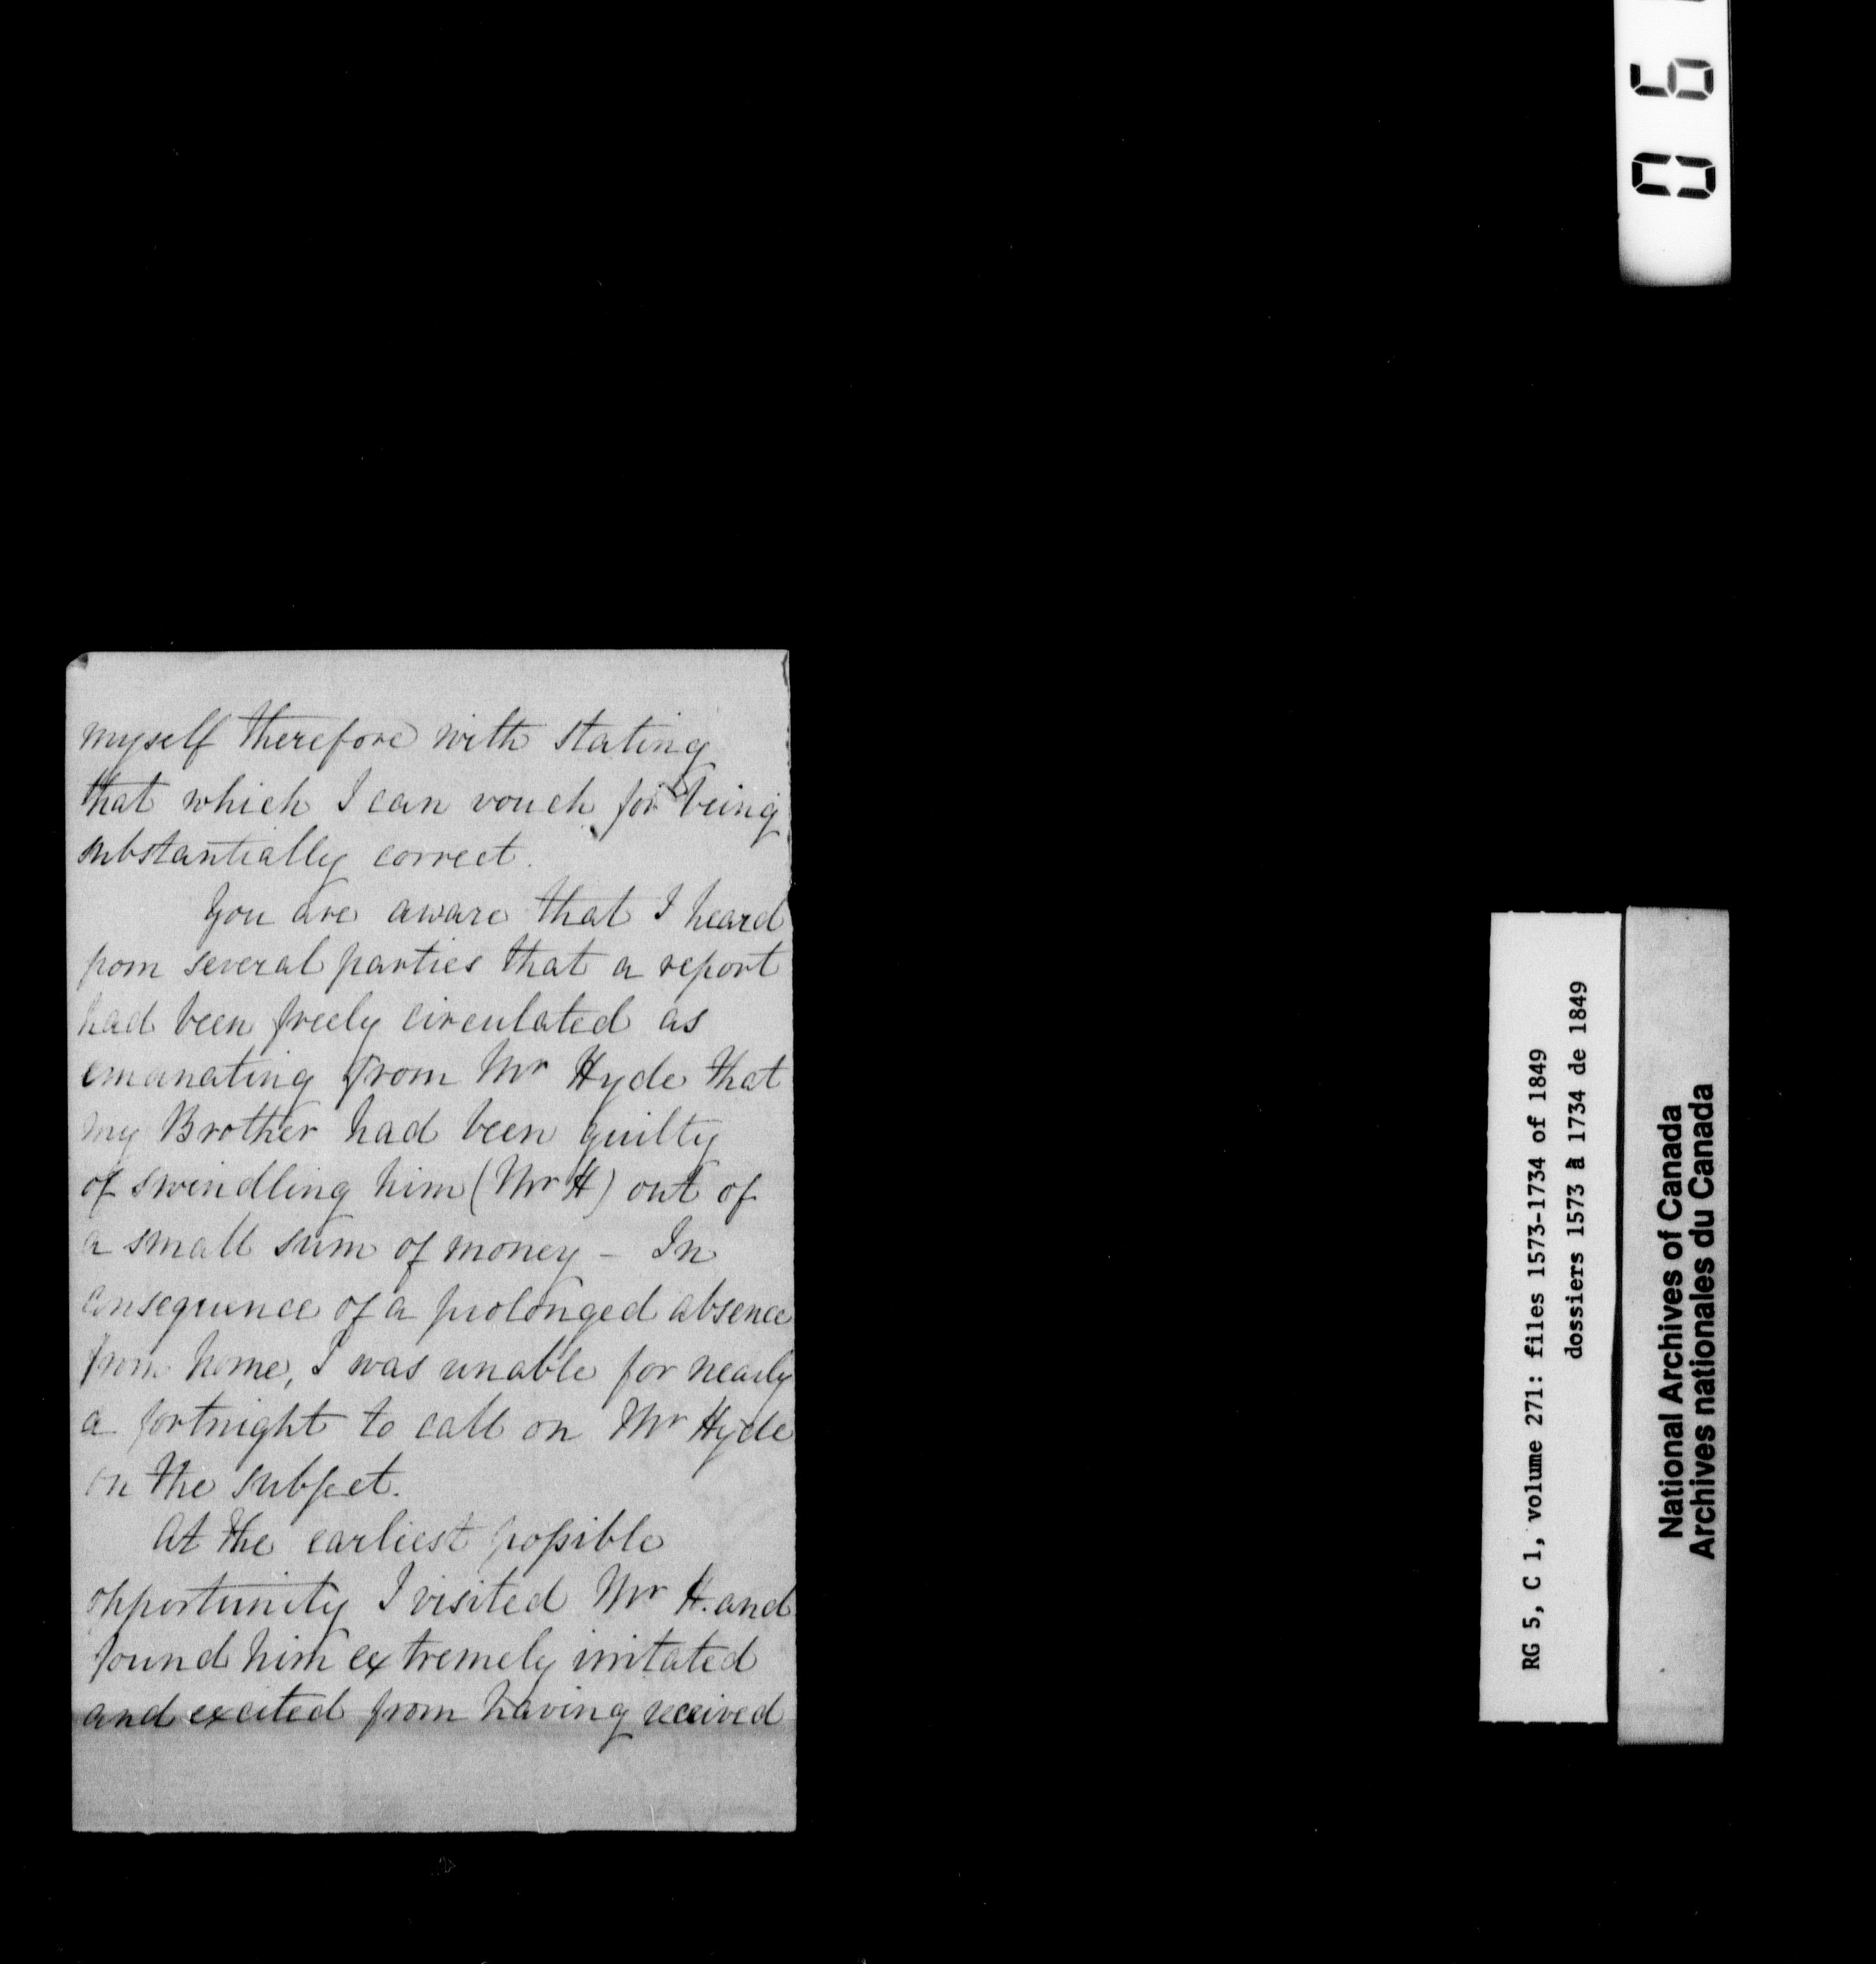 myself therefore with stating
that which I can vouch for being
substantially correct.
You are aware that I heard
from several parties that a report
had been freely circulated as
emanating from Mr Hyde that
my Brother had been guilty
of swindling him (Mr H) out of
a small sum of money – In
consequence of a prolonged absence
from home, I was unable for nearly
a fortnight to call on Mr Hyde
on the subject.
At the earliest possible
opportunity I visited Mr H. and
found him extremely irritated
and excited from having received
RG 5, C 1, volume 271: files 1573-1734 of 1849
dossiers 1573 à 1734 de 1849
National Archives of Canada
Archives nationales du Canada